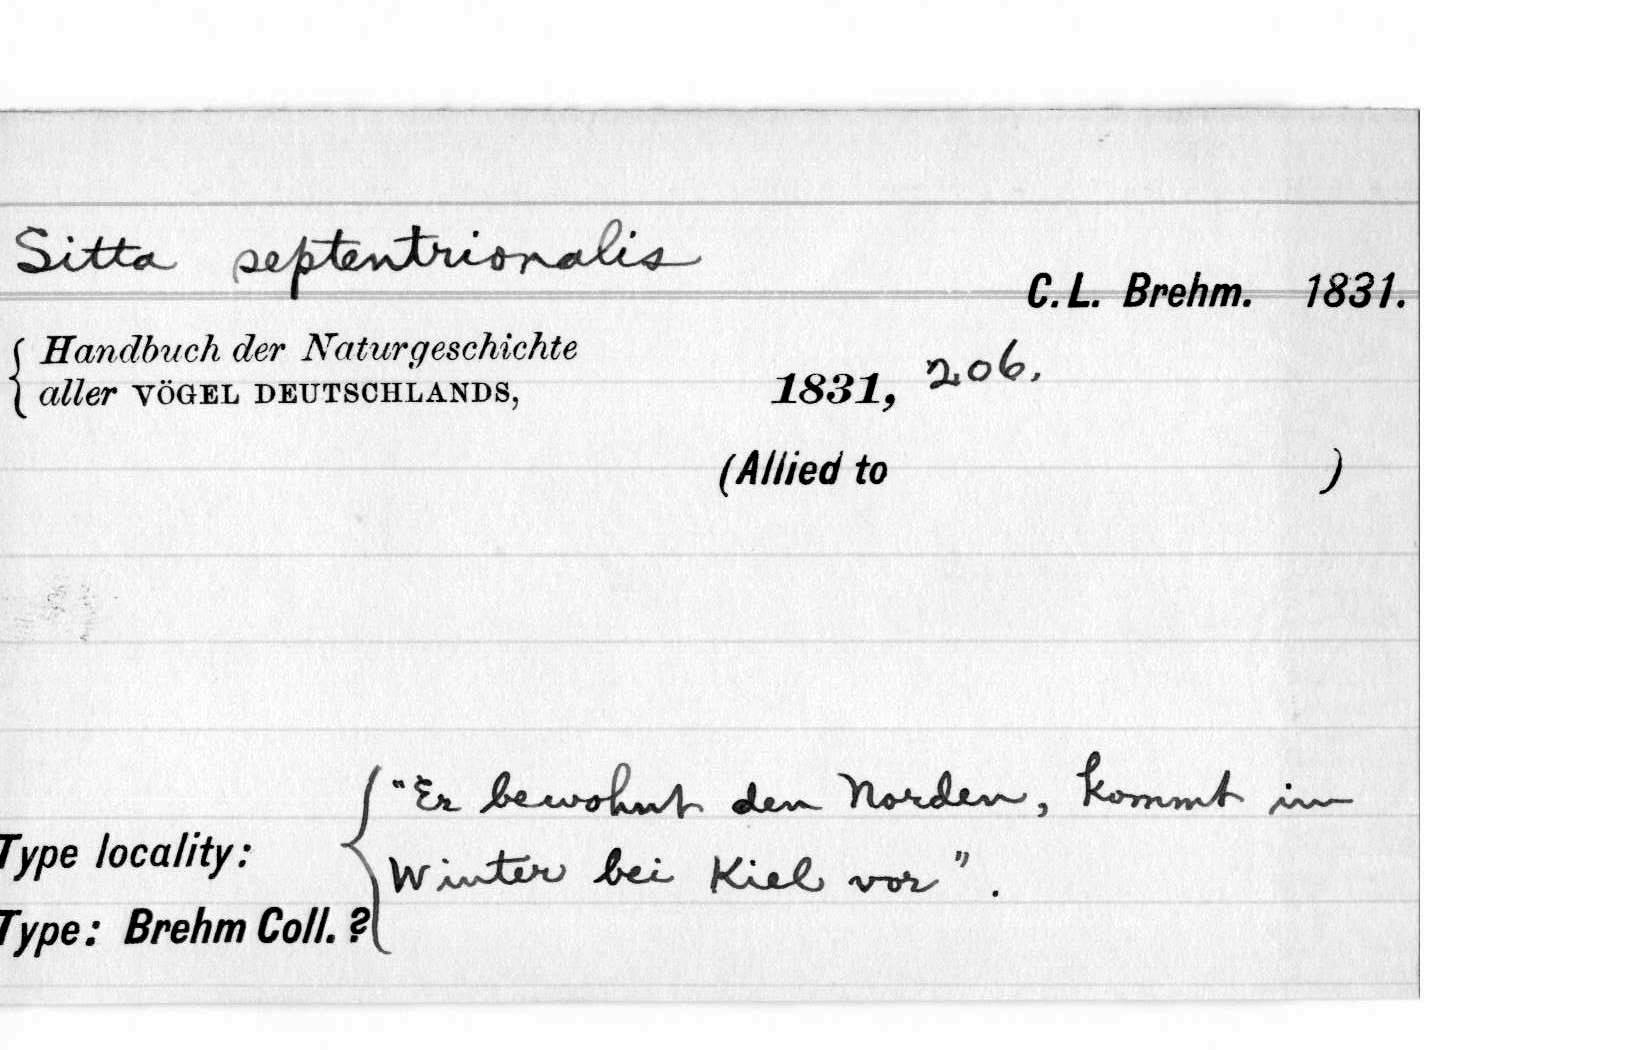 Sitta septentrionalis
C. L. Brehm. 1831.
Handbuch der Naturgeschichte
aller VÖGEL DEUTSCHLANDS,
1831, 206.
(Allied to )
"Er bewohnt den Norden, kommt im
Type locality:
Winter bei Kiel vor".
Type: Brehm Coll. ?